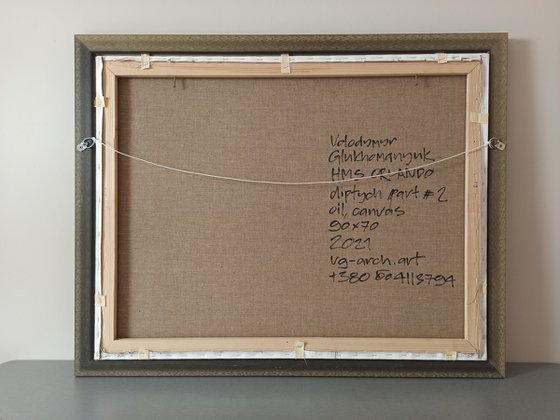 Volodymyr
Glukhomanyuk
HMS ORLANDO
diptych part #2
oil, canvas
90x70
2021
vg-arch.art
+380 504113794